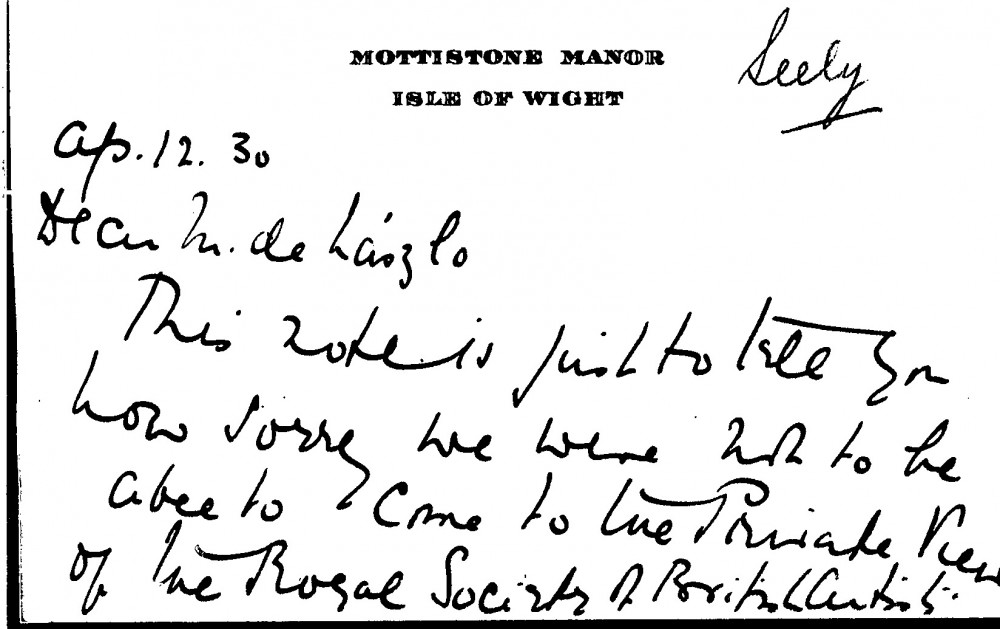 MOTTISTONE MANOR
ISLE OF WIGHT
Seely
Ap. 12. 30
Dear M. de László
This note is just to tell you
how sorry we were not to be
able to come to the Private View
of the Royal Society of British Artists.